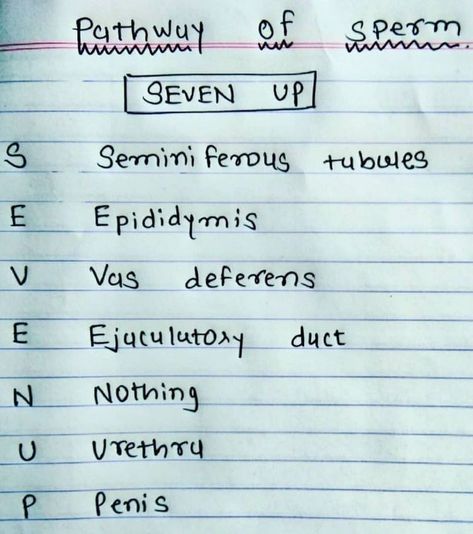 Pathway of Sperm.
SEVEN UP
S Seminiferous tubules
E Epididymis
V Vas deferens
E Ejaculatory duct
N Nothing
U Urethra
P Penis